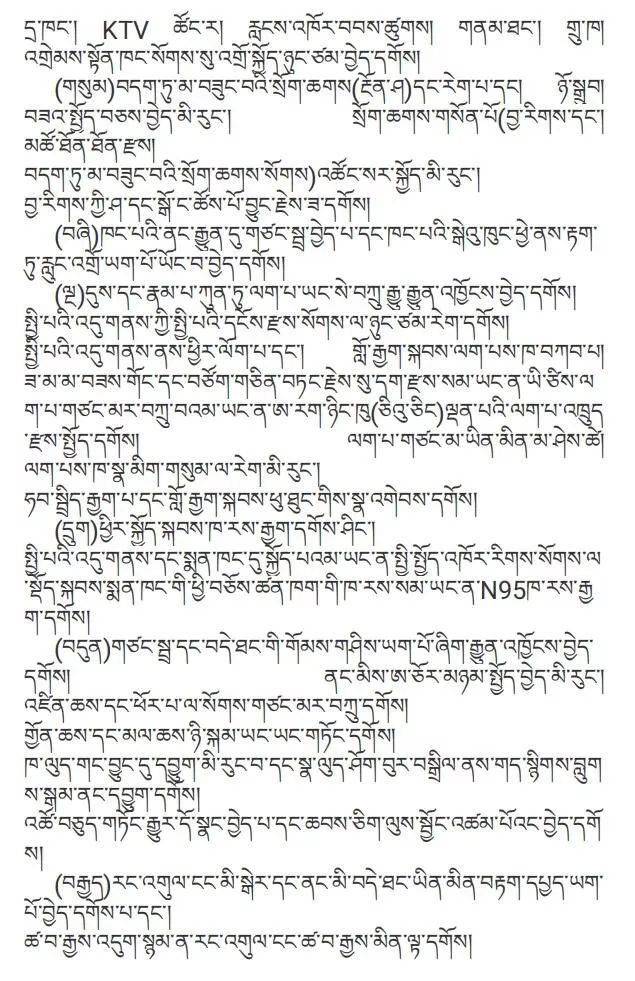 དྲ་ཁང་། KTV ཚོང་ར། རླངས་འཁོར་བབས་ཚུགས། གནམ་ཐང་། གྲུ་ཁ།
འགྲེམས་སྟོན་ཁང་སོགས་སུ་འགྲོ་སྐྱོད་ཉུང་ཙམ་བྱེད་དགོས།
(གསུམ)བདག་ཏུ་མ་བཟུང་བའི་སྲོག་ཆགས(རྔོན་ཤ)དང་རེག་པ་དང། ཉོ་སྒྲུབ།
བཟའ་སྤྱོད་བཅས་བྱེད་མི་རུང་། སྲོག་ཆགས་གསོན་པོ(བྱ་རིགས་དང་།
མཚོ་ཐོན་ཐོན་རྫས།
བདག་ཏུ་མ་བཟུང་བའི་སྲོག་ཆགས་སོགས)འཚོང་སར་སྐྱོད་མི་རུང་།
བྱ་རིགས་ཀྱི་ཤ་དང་སྒོ་ང་ཚོས་པོ་བྱུང་རྗེས་ཟ་དགོས།
(བཞི)ཁང་པའི་ནང་རྒྱུན་དུ་གཙང་སྦྲ་བྱེད་པ་དང་ཁང་པའི་སྒེའུ་ཁུང་ཕྱེ་ནས་རྟག་
ཏུ་རླུང་འགྲོ་ཡག་པོ་ཡོང་བ་བྱེད་དགོས།
(ལྔ)དུས་དང་རྣམ་པ་ཀུན་ཏུ་ལག་པ་ཡང་སེ་བཀྲུ་རྒྱུ་རྒྱུན་འཁྱོངས་བྱེད་དགོས།
སྤྱི་པའི་འདུ་གནས་ཀྱི་སྤྱི་པའི་དངོས་རྫས་སོགས་ལ་ཉུང་ཙམ་རེག་དགོས།
སྤྱི་པའི་འདུ་གནས་ནས་ཕྱིར་ལོག་པ་དང་། གློ་རྒྱག་སྐབས་ལག་པས་ཁ་བཀབ་པ།
ཟ་མ་མ་བཟས་གོང་དང་བཙོག་གཅིན་བཏང་རྗེས་སུ་དག་རྫས་སམ་ཡང་ན་ཡི་ཙིས་ལ
ག་པ་གཙང་མར་བཀྲུ་བའམ་ཡང་ན་ཨ་རག་ཉིང་ཁུ(ཅིའུ་ཅིང)ལྡན་པའི་ལག་པ་འཁྲུད
་རྫས་སྤྱོད་དགོས། ལག་པ་གཙང་མ་ཡིན་མིན་མ་ཤེས་ཚེ།
ལག་པས་ཁ་སྣ་མིག་གསུམ་ལ་རེག་མི་རུང་།
ཧབ་སྦྲིད་རྒྱག་པ་དང་གློ་རྒྱག་སྐབས་ཕུ་ཐུང་གིས་སྣ་འགེབས་དགོས།
(དྲུག)ཕྱིར་སྐྱོད་སྐབས་ཁ་རས་རྒྱག་དགོས་ཤིང་།
སྤྱི་པའི་འདུ་གནས་དང་སྨན་ཁང་དུ་སྐྱོད་པའམ་ཡང་ན་སྤྱི་སྤྱོད་འཁོར་རིགས་སོགས་ལ
་སྡོད་སྐབས་སྨན་ཁང་གི་ཕྱི་བཅོས་ཚན་ཁག་གི་ཁ་རས་སམ་ཡང་ན་N95ཁ་རས་རྒྱ
ག་དགོས།
(བདུན)གཙང་སྦྲ་དང་བདེ་ཐང་གི་གོམས་གཤིས་ཡག་པོ་ཞིག་རྒྱུན་འཁྱོངས་བྱེད་
དགོས། ནང་མིས་ཨ་ཅོར་མཉམ་སྤྱོད་བྱེད་མི་རུང་།
འཛིན་ཆས་དང་ཕོར་པ་ལ་སོགས་གཙང་མར་བཀྲུ་དགོས།
གྱོན་ཆས་དང་མལ་ཆས་ཉི་སྐམ་ཡང་ཡང་གཏོང་དགོས།
ཁ་ལུད་གང་བྱུང་དུ་དབྱུག་མི་རུང་བ་དང་སྣ་ལུད་ཤོག་བུར་བསྒྲིལ་ནས་གད་སྙིགས་བླུག
ས་སྒམ་ནང་དབྱུག་དགོས།
འཚོ་བཅུད་གཏོང་རྒྱུར་དོ་སྣང་བྱེད་པ་དང་ཆབས་ཅིག་ལུས་སྦྱོང་འཚམ་པོའང་བྱེད་དགོ
ས།
(བརྒྱད)རང་འགུལ་ངང་མི་སྒེར་དང་ནང་མི་བདེ་ཐང་ཡིན་མིན་བརྟག་དཔྱད་ཡག་
པོ་བྱེད་དགོས་པ་དང་།
ཚ་བ་རྒྱས་འདུག་སྙམ་ན་རང་འགུལ་ངང་ཚ་བ་རྒྱས་མིན་ལྟ་དགོས།